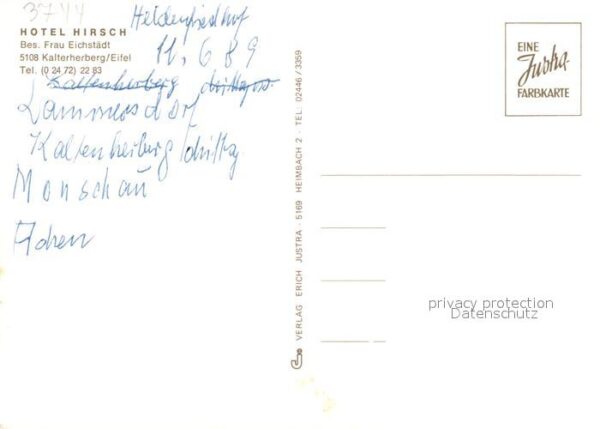 3744
HOTEL HIRSCH
Bes. Frau Eichstädt
5108 Kalterherberg/Eifel
Tel. (0 24 72) 22 83
Heldenfriedhof
11.6 89
Kaltenherberg
Lammersdorf
Kaltenherberg
Monschau
Achen
VERLAG ERICH JUSTRA · 5169 HEIMBACH 2 · TEL. 02446/3359
EINE
Justra-
FARBKARTE
privacy protection
Datenschutz